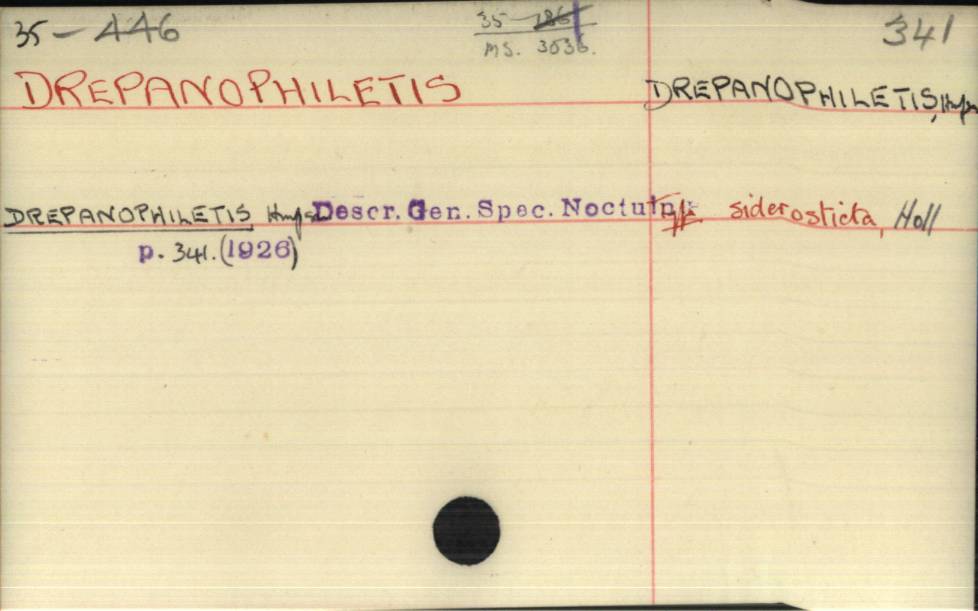 35 - 446
35 - 186
MS. 3036.
341
DREPANOPHILETIS
DREPANOPHILETIS, Hmpsn
DREPANOPHILETIS Hmpsn Descr. Gen. Spec. Noctuin siderosticta, Holl
p. 341. (1926)